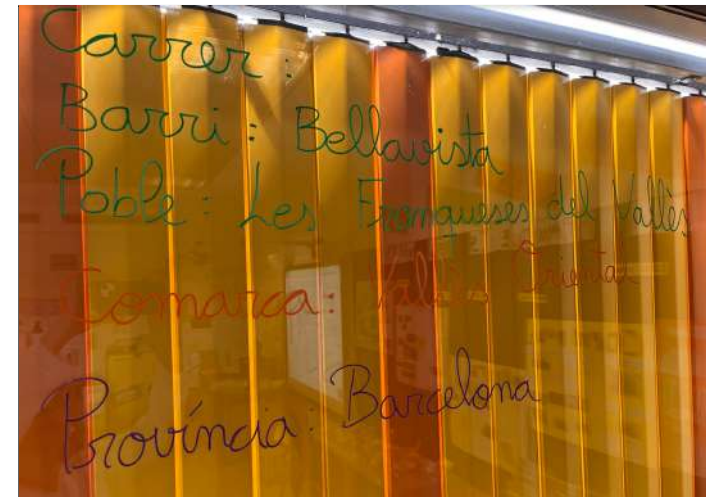 Carrer :
Barri : Bellavista
Poble : Les Franqueses del Vallès
Comarca : Vallès Oriental
Província : Barcelona